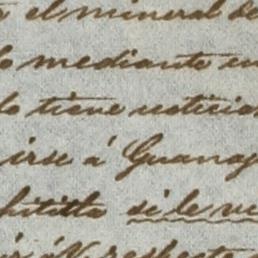 el mineral de
lo mediante en
lo tiene noticia
irse á Guanaj
si le ve
respecto